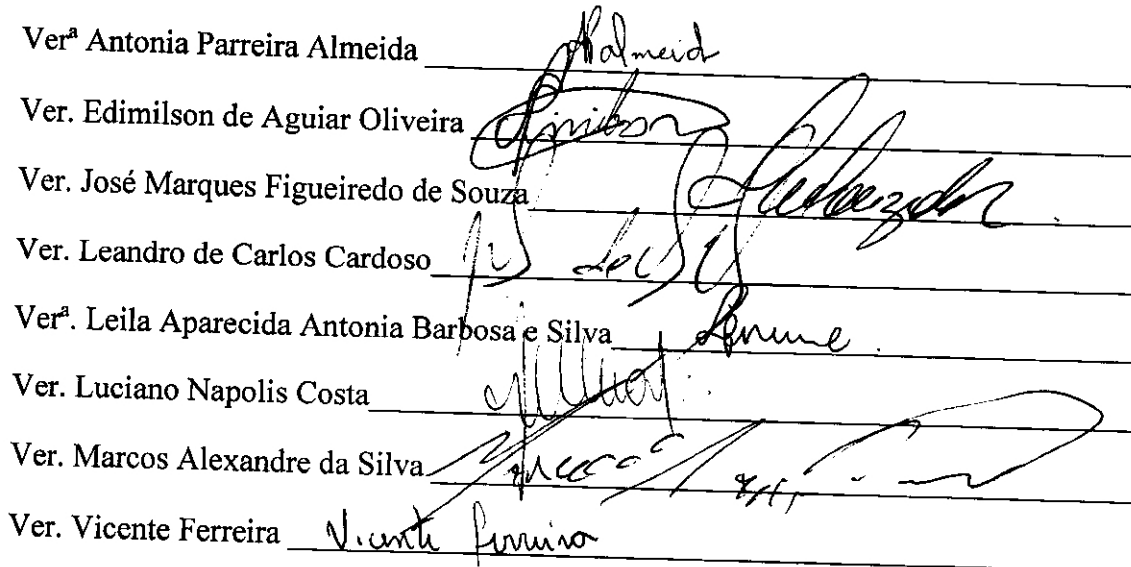 Verª Antonia Parreira Almeida Aalmeid
Ver. Edimilson de Aguiar Oliveira
Ver. José Marques Figueiredo de Souza
Ver. Leandro de Carlos Cardoso
Verª. Leila Aparecida Antonia Barbosa e Silva
Ver. Luciano Napolis Costa
Ver. Marcos Alexandre da Silva
Ver. Vicente Ferreira Vicente Ferreira